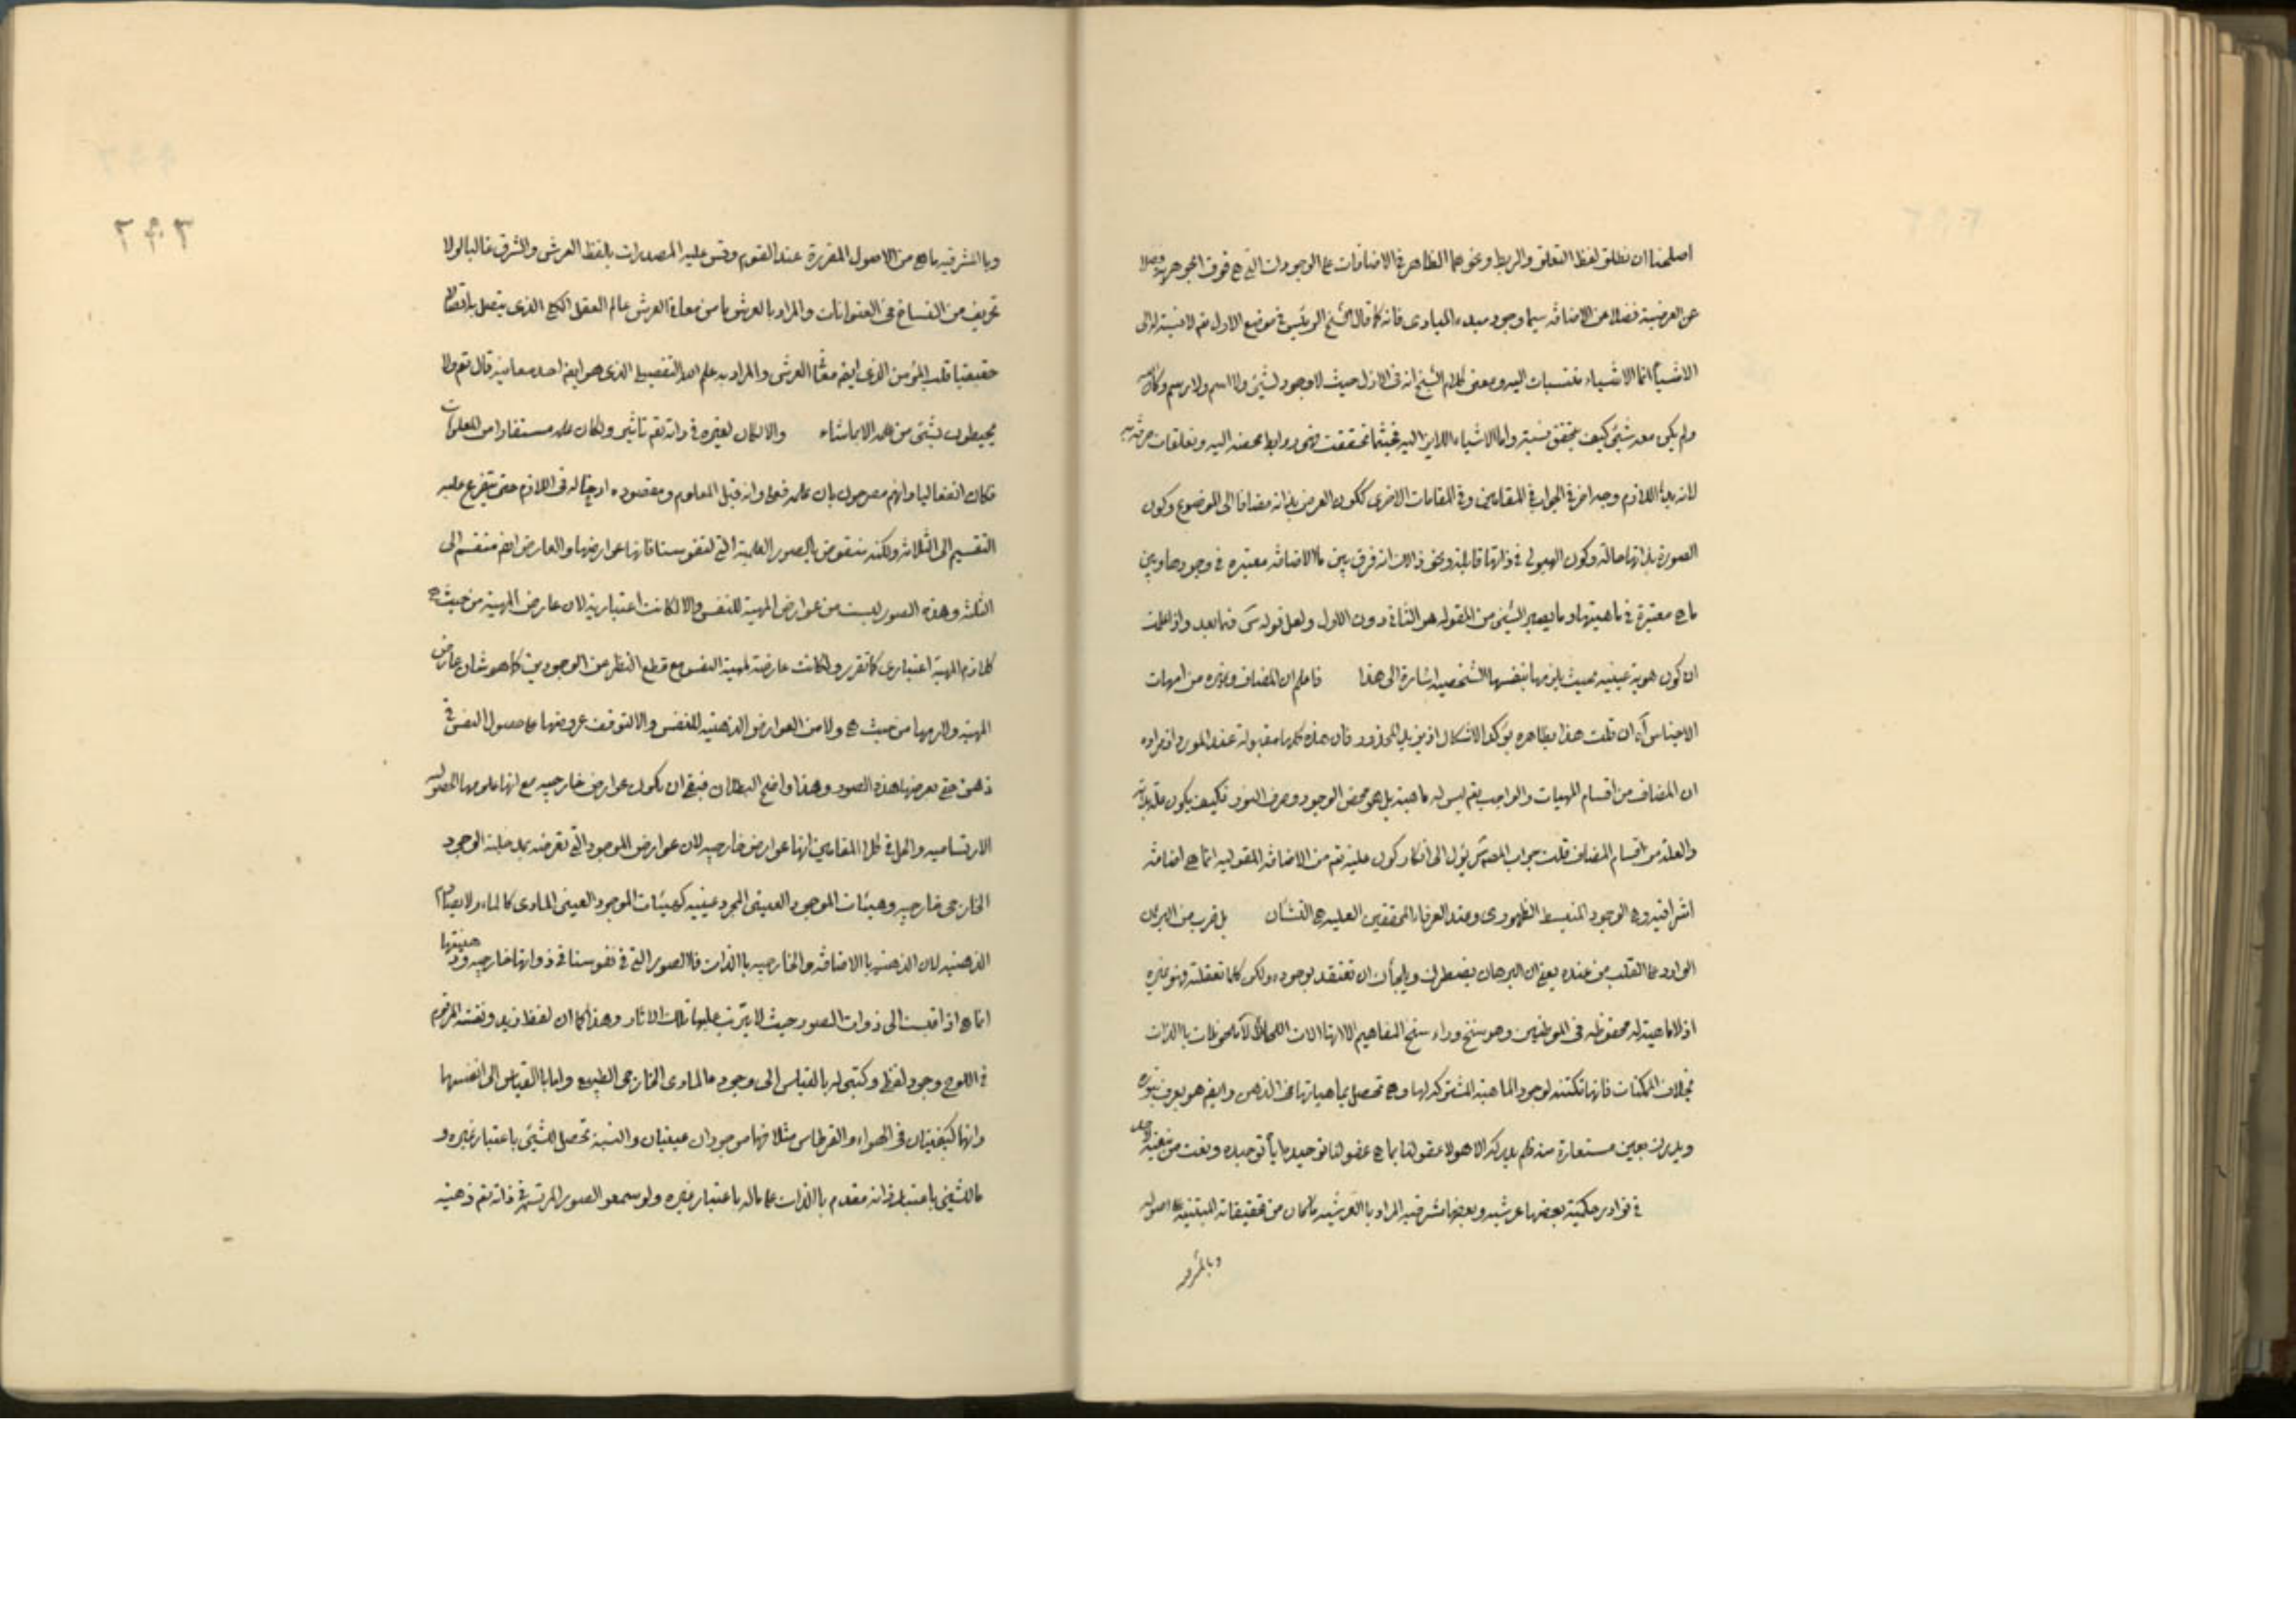 اصلحنا ان نطلق لفظ التعلق والربط ونحوهما الظاهر فى الاضافات على الوجودات التى هى فوق الجوهرية وفضلا
عن العرضية فضلا عن الاضافة سيما وجود مبدء المبادى فانه كما قال الشيخ الرئيس فى موضع الاول تم لا نسبة له الى
الاشياء انما الاشياء منتسبات اليه ومعنى كلام الشيخ انه فى الازل حيث لا وجود لشئ ولا اسم ولا رسم وكان الله
ولم يكن معه شئ كيف يتحقق نسبة واما الاشياء اللايزاليه فحيثما تحققت فهى روابط محضه اليه وتعلقات صرفة به
لانه بدؤ اللازم وجه اخر فى الجواب فى المقامين وفى المقامات الاخرى ككون العرض بذاته مضافا الى الموضوع وكون
الصورة بذاتها حالة وكون الهيولى فى ذاتها قابلة ونحو ذالك انه فرق بين ما الاضافة معتبره فى وجودها وبين
ما هى معتبرة فى ماهيتها وما يصير الشئ من المقوله هو الثانى دون الاول ولعل قوله س فيما بعد واذا علمت
ان كون هوية عينيه بحيث يلزمها بنفسها الشخصيه اشارة الى هذا فاعلم ان المضاف وغيره من امهات
الاجناس آه ان قلت هذا بظاهره يؤكد الاشكال اذ يزيد المحذور فان هذه كلها مقبولة عند المورد اذ مراده
ان المضاف من اقسام المهيات والواجب تم ليس له ماهية بل هو محض الوجود وصرف النور فكيف يكون علة بذاته
والعلة من اقسام المضاف قلت جواب المصس يؤل الى انكار كون علية تم من الاضافة المقوليه انما هى اضافة
اشراقيه وهى الوجود المنبسط الظهورى وعند العرفاء المحققين العليه هى التشان بل ضرب من البرهان
الوارد على القلب من عنده يعنى ان البرهان يضطرك ويلجأك ان تعتقد بوجوده ولكن كلما تعقلته فهو غيره
اذ لا ماهية له محفوظه فى الموطنين وهو سنخ وراء سنخ المفاهيم الا انها الات اللحاظ لا ملحوظات بالذات
بخلاف الممكنات فانها تكتنه لوجود الماهية المشتركه لها وهى تحصل بماهياتها فى الذهن وايضم هو يعرف بنوره
ويدرك بعين مستعارة منه فلم يدركه الا هو لا عقولنا بما هى عقولنا توحيده اياه توحيده ونعت من ينعته لاحد
فى نوادر حكمية بعضها عرشيه وبعضها مشرقيه المراد بالعرشيه ما كان من تحقيقاته المبتنيه على اصوله
وبالمشرقيه
٢٩٣
وبا المشرقيه ما هى من الاصول المقررة عند القوم وقس عليه المصدرات بلفظ العرش والشرق غالبا لولا
تحريف من النساخ فى العنوانات والمراد با العرش ما من معانى العرش عالم العقل الكلى الذى يتصل باتصالا
حقيقيا قلب المؤمن الذى ايضم معنا العرش والمراد به علم الله التفصيلى الذى هو ايضم احد معانيه قال تم ولا
يحيطون بشئ من علمه الا بما شاء والا لكان لغيره فى ذاته تم تاثير ولكان علمه مستفادا من المعلومات
فكان انفعاليا وانهم مصرحون بان علمه فعلى وانه قبل المعلوم ومقصوده ادرجنا له فى اللازم حتى يتفرع عليه
التقسيم الى الثلاثه ولكنه منقوض بالصور العلمية التى لنفوسنا فانها عوارضها والعارض ايضم منقسم الى
الثلثه وهذه الصور ليست من عوارض المهية للنفس والا لكانت اعتبارية لان عارض المهية من حيث هى
كلازم المهية اعتبارى كما تقرر ولكانت عارضة لمهية النفس مع قطع النظر عن الوجودين كما هو شان عارض
المهية ولازمها من حيث هى ولا من العوارض الذهنيه للنفس والا لتوقف عروضها على حصول النفس فى
ذهن حتى تعرضها هذه الصور وهذا واضح البطلان فبقى ان يكون عوارض خارجيه مع انها علومها الحصوليه
الارتساميه والحل فى كلا المقامين انها عوارض خارجيه لان عوارض الموجود التى تعرضه بمدخلية الوجود
الخارجى خارجيه وهيئات الموجود العينى المجرد عينيه كهيئات الموجود العينى المادى كالماء ولا يصادم
الذهنيه لان الذهنيه با الاضافة والخارجيه باالذات فالصور التى فى نفوسنا فى ذواتها خارجيه وذهنيتها
انما هى اذا قيست الى ذوات الصور حيث لا يترتب عليها تلك الاثار وهذا كما ان لفظ زيد ونقشه المرقوم
فى اللوح وجود لفظى وكتبى له بالقياس الى وجود ما المادى الخارجى الطبيعى واما بالقياس الى انفسهما
وانهما كيفيتان فى الهواء والقرطاس مثلا فهما موجودان عينيان والنسبة تحصل للشئ باعتبار غيره و
ما للشئ باعتبار ذاته مقدم باالذات على ماله باعتبار غيره ولو سمعوا الصور المرتسمة فى ذاته تم ذهنيه